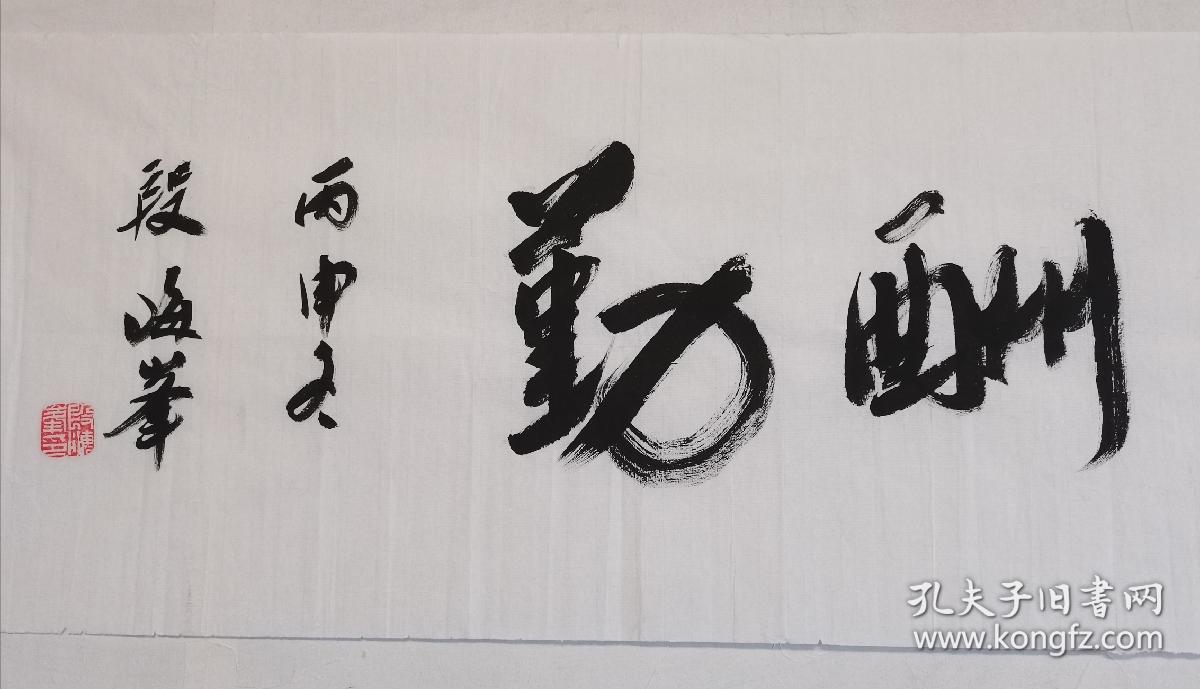 酬勤
丙申冬
段海峯
段海峯印
孔夫子旧書网
www.kongfz.com